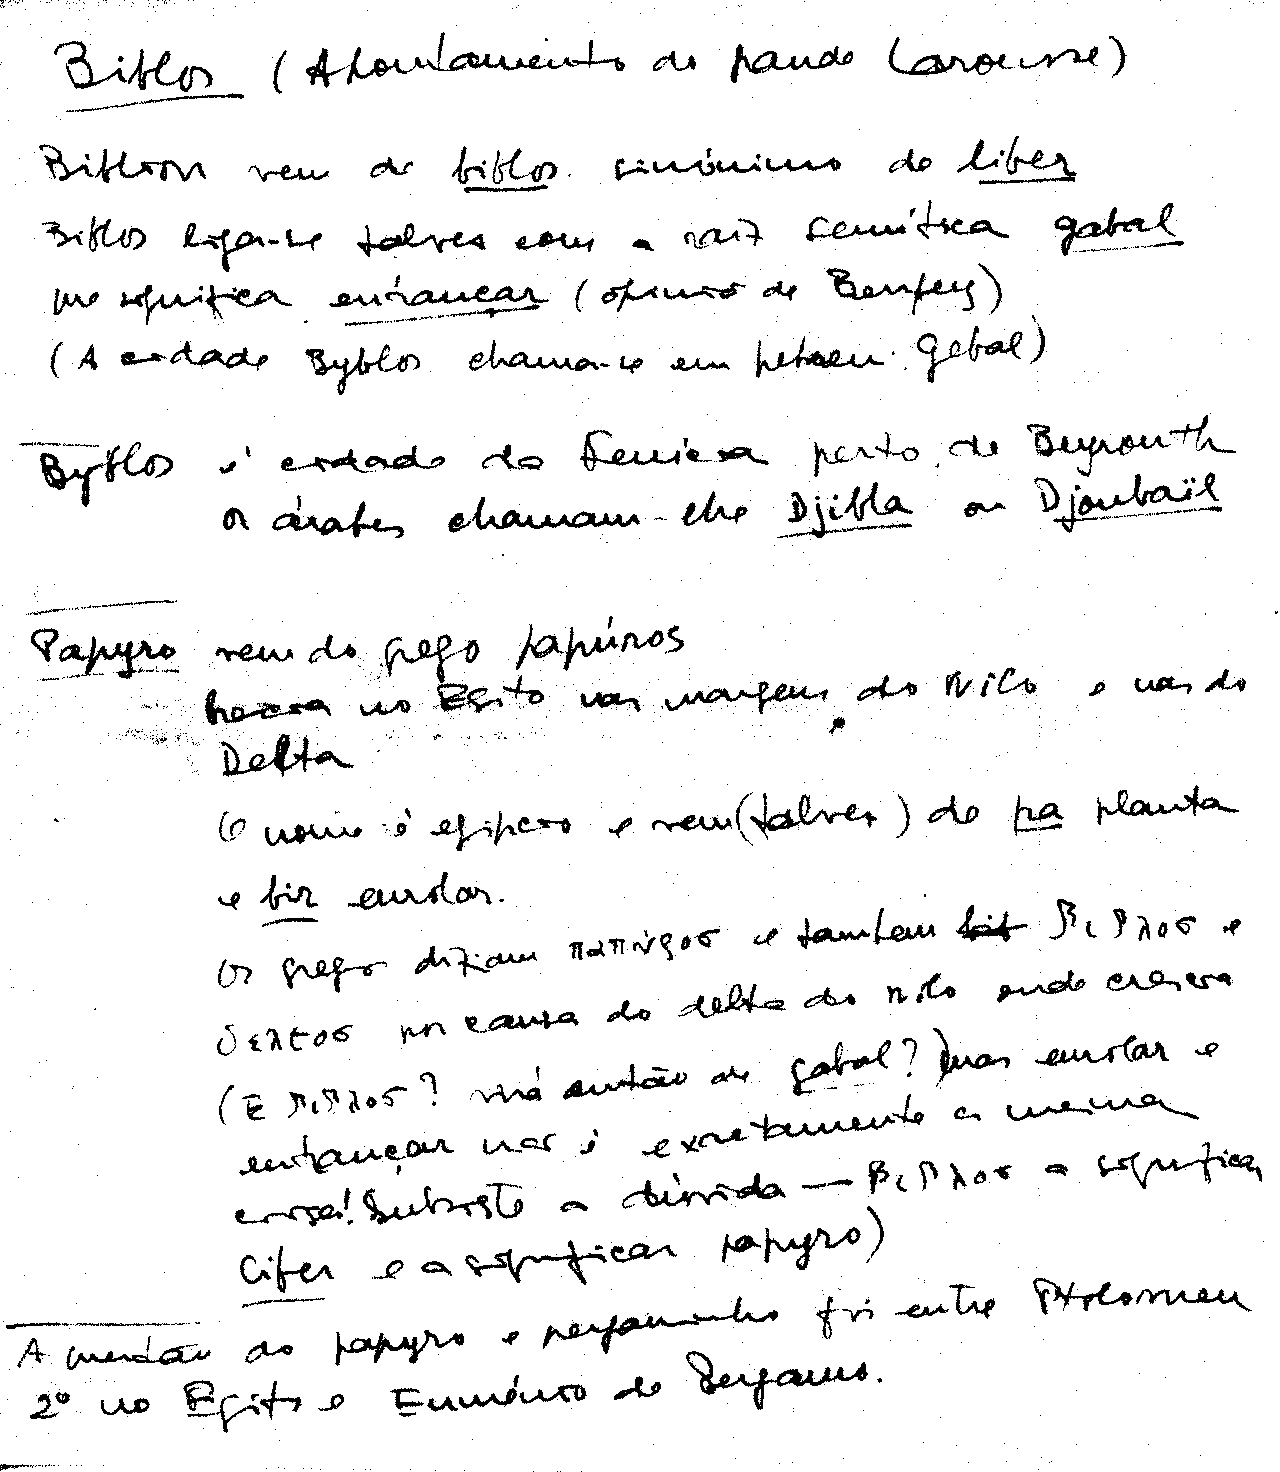 Biblos (Apontamento do grande Larousse)
Biblion vem de biblos sinónimo de liber
Biblos liga-se talvez com a raiz semítica gabal
que significa entrançar (opinião de Benfey)
(A cidade Byblos chama-se em Gebal)
Byblos é cidade da Fenícia perto de Beyrouth
os árabes chamam-lhe Djibla ou Djoubaïl
Papyro vem do grego papúros
no Egito nas margens do Nilo e nas do
Delta
O nome é egípcio e vem (talvez) de pa planta
e bir enrolar.
Os gregos diziam παπύρος e tambem βιβλος e
δελτος por causa do delta do Nilo onde crescia
(E βιβλος? virá então de gabal? Mas enrolar e
entrançar não é exactamente a mesma
coisa! Subsiste a dúvida — βιβλος a significar
liber e a significar papyro)
A questão do papyro e pergaminho foi entre Ptolomeu
2º no Egito e Euménio de Pergamo.